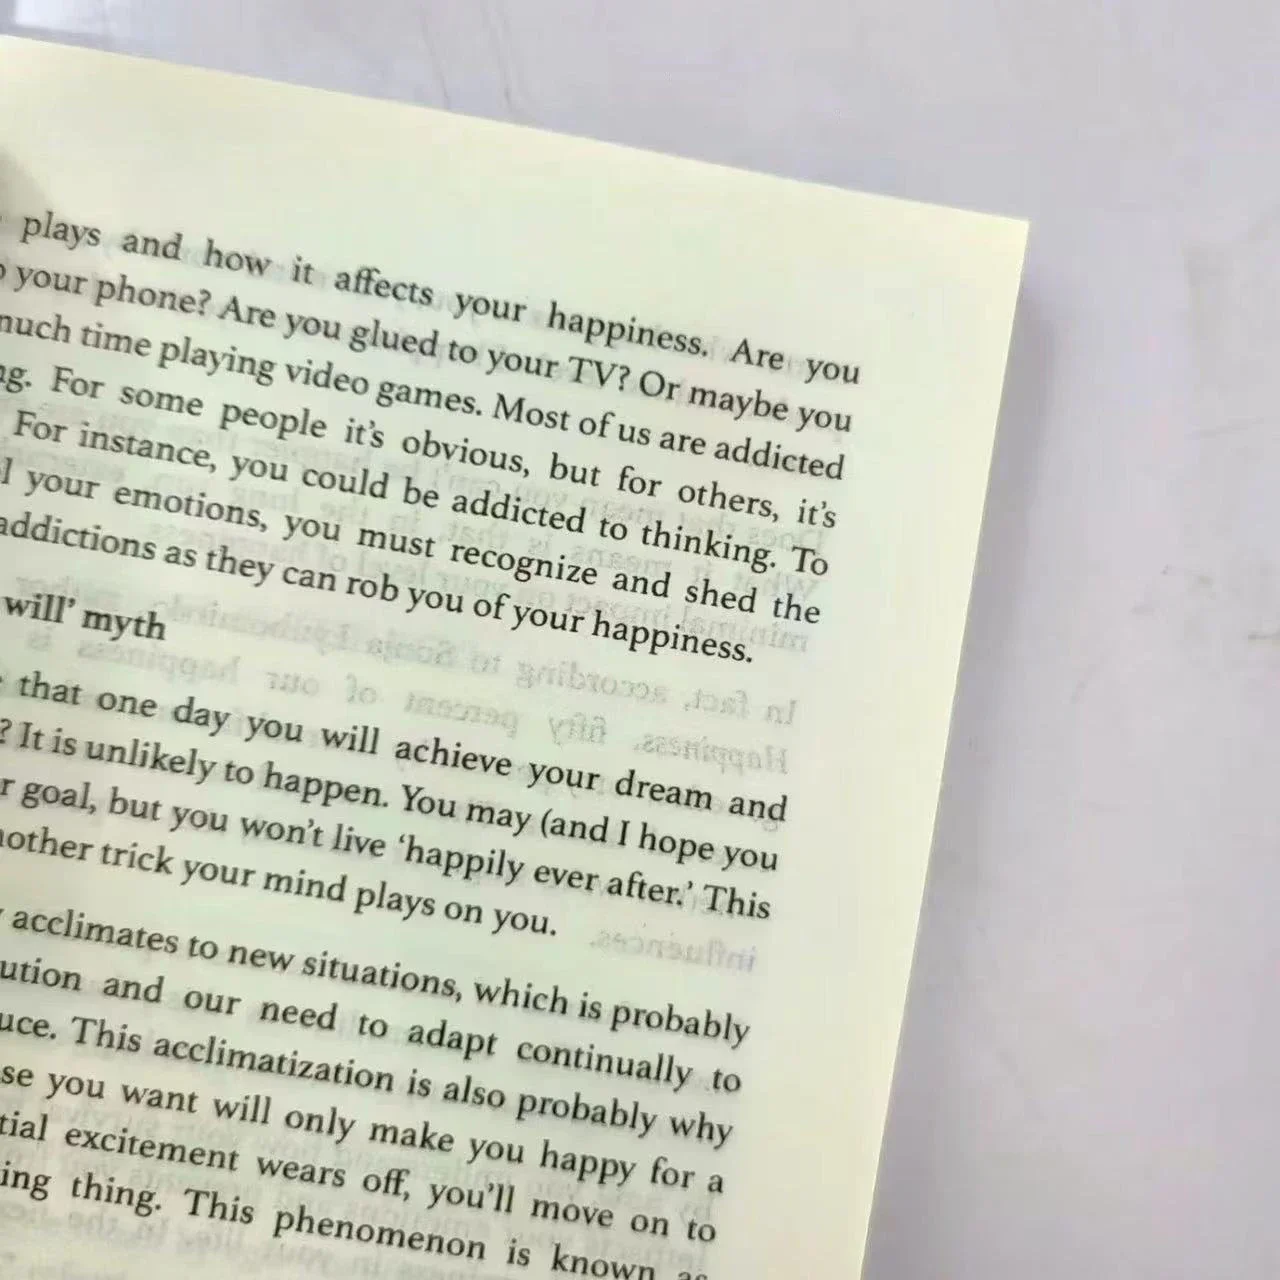 plays and how it affects your happiness. Are you
your phone? Are you glued to your TV? Or maybe you
much time playing video games. Most of us are addicted
ng. For some people it's obvious, but for others, it's
For instance, you could be addicted to thinking. To
l your emotions, you must recognize and shed the
addictions as they can rob you of your happiness.
will' myth
that one day you will achieve your dream and
? It is unlikely to happen. You may (and I hope you
r goal, but you won't live 'happily ever after.' This
nother trick your mind plays on you.
acclimates to new situations, which is probably
ution and our need to adapt continually to
uce. This acclimatization is also probably why
se you want will only make you happy for a
tial excitement wears off, you'll move on to
ing thing. This phenomenon is known as